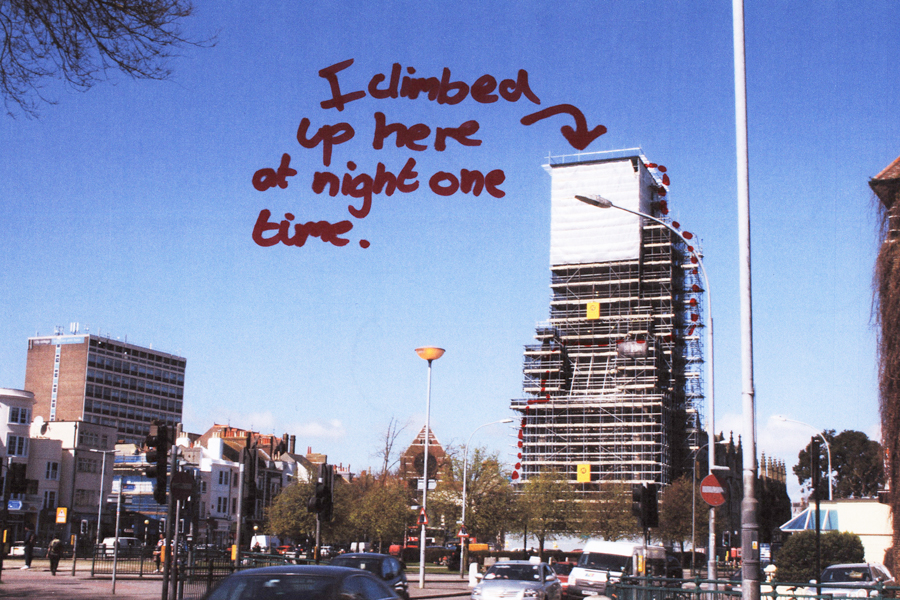 I climbed
up here
at night one
time.